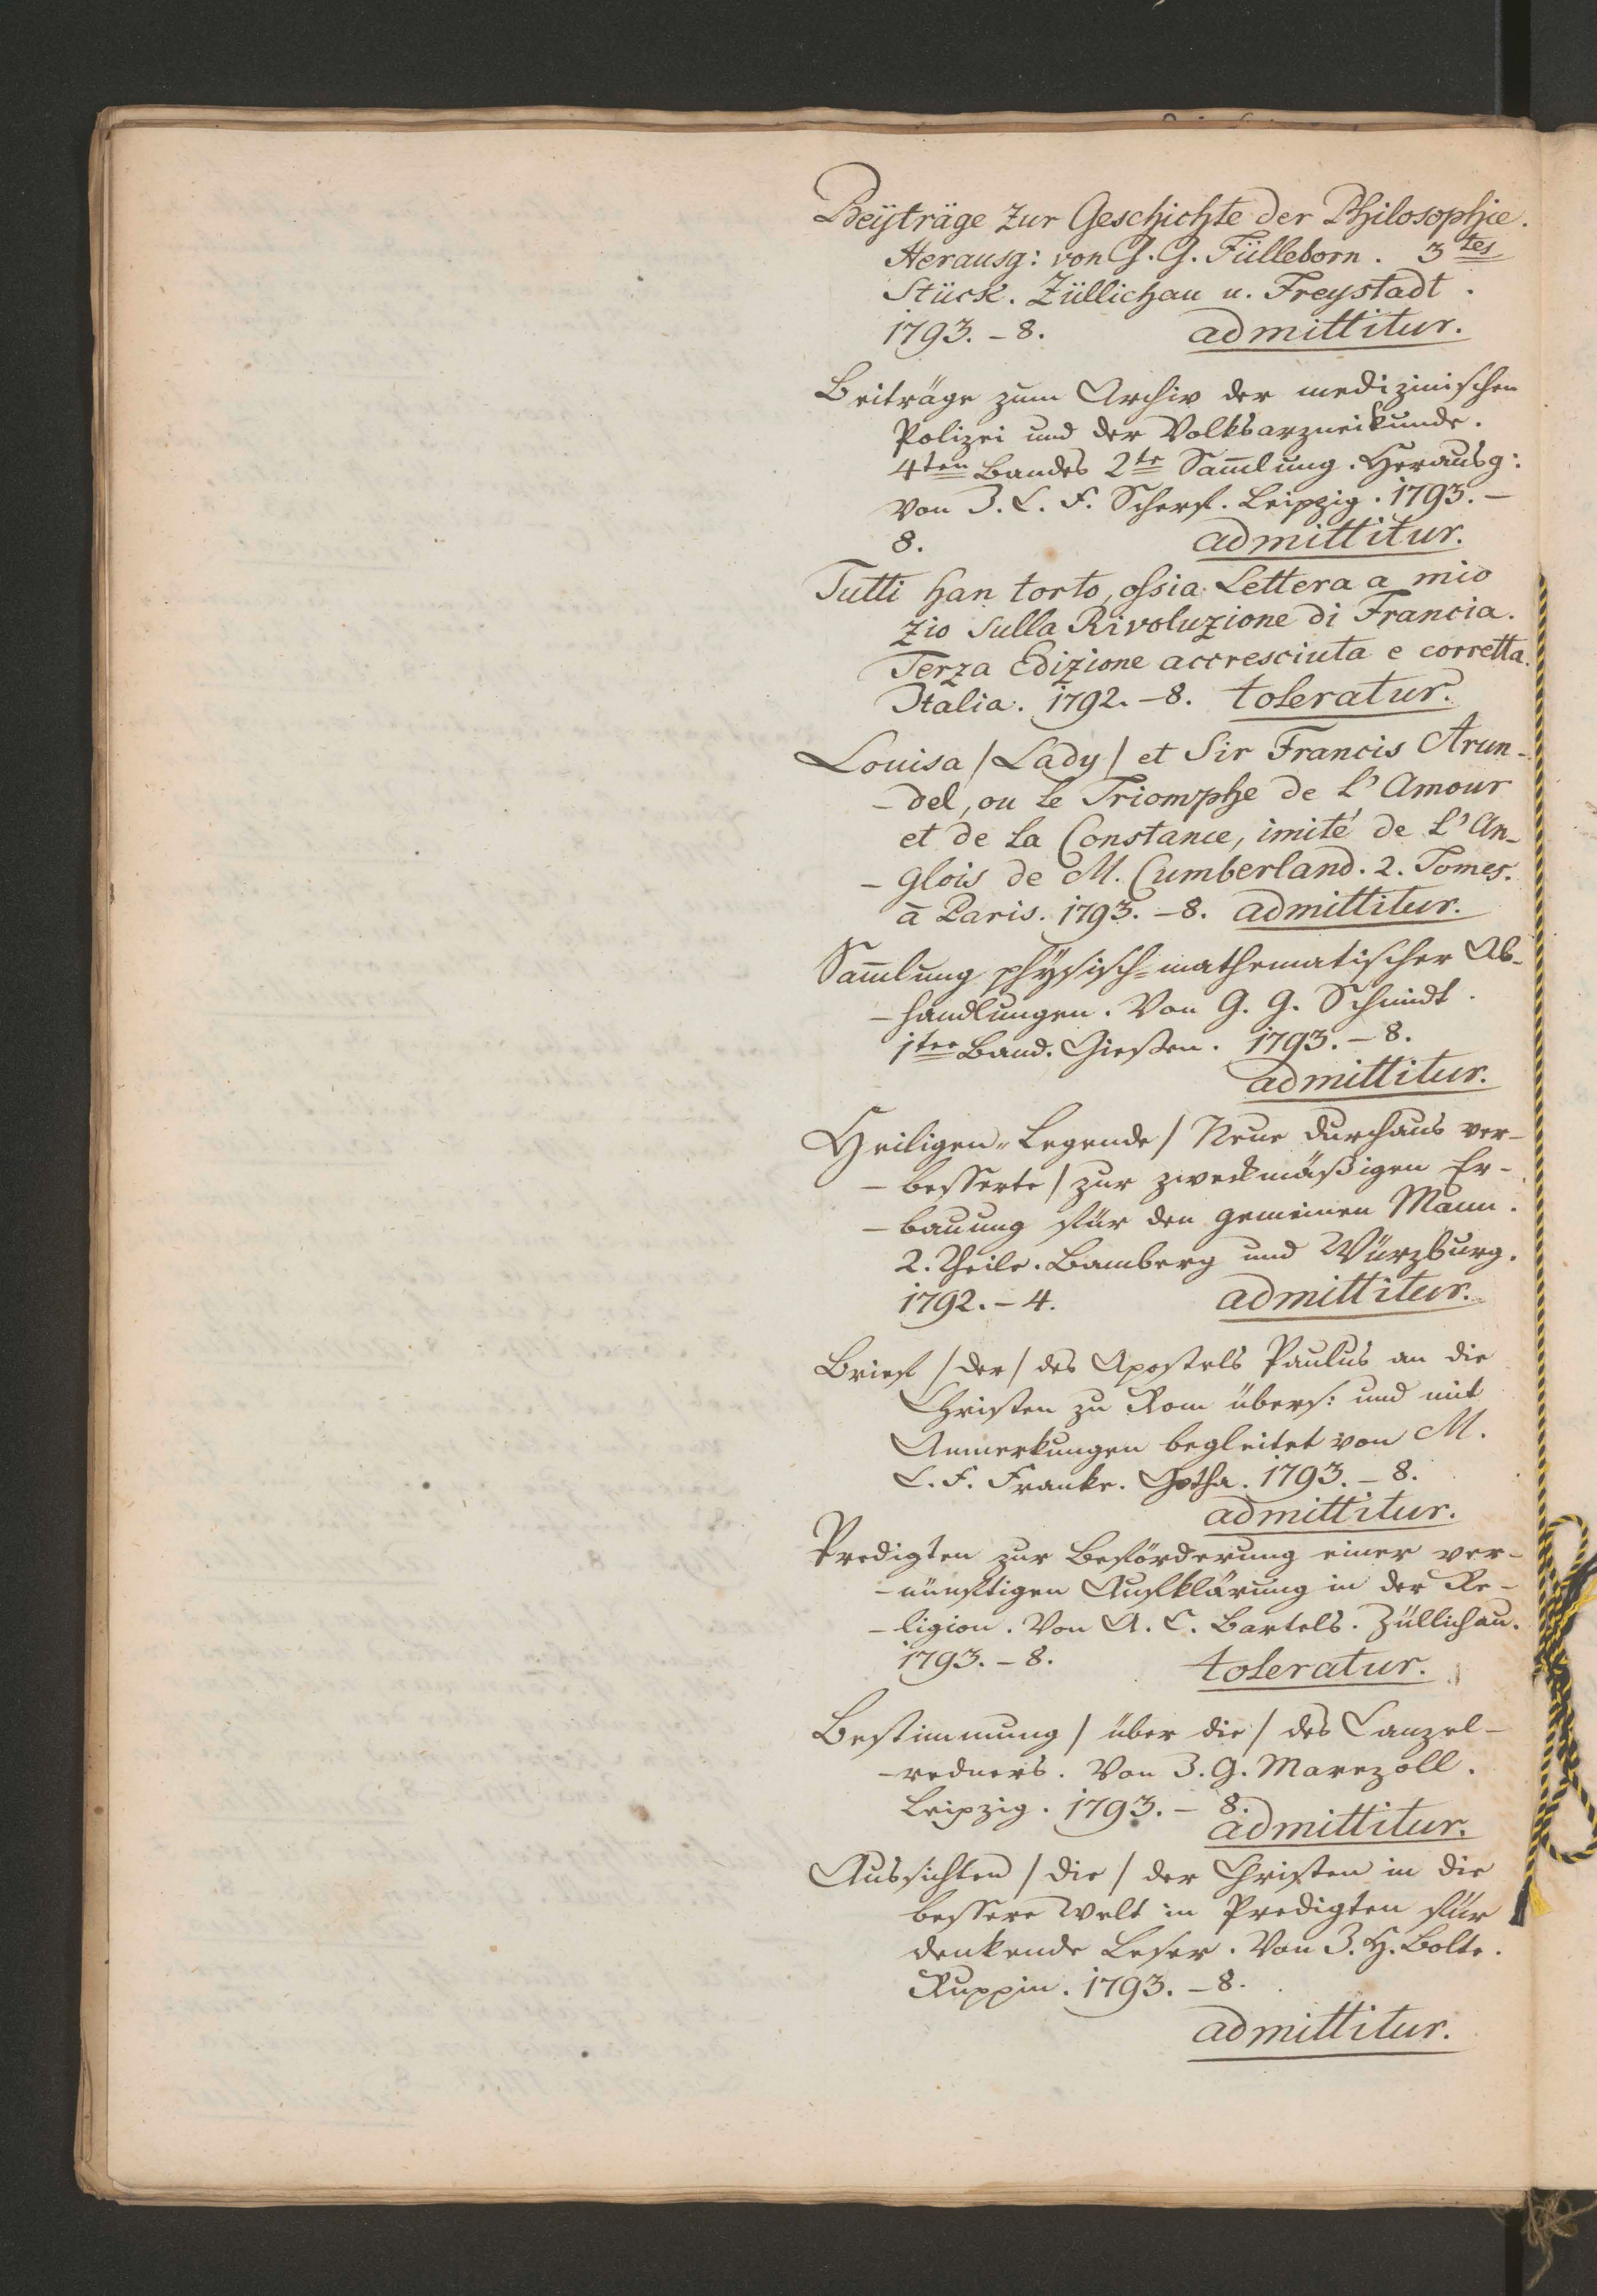 Beÿträge zur Geschichte der Philosophie.
Herausg: von G. G. Fülleborn. 3tes
Stück. Züllichau u. Freystadt.
1793. - 8. admittitur.
Beiträge zum Archiv der medizinischen
Polizei und der Volksarzneikunde.
4ten Bandes 2te Sam̄lung. Herausg:
von J. C. F. Scherf. Leipzig. 1793. -
8. admittitur.
Tutti han torto, ossia Lettera a mio
zio sulla Rivoluzione di Francia.
Terza Edizione accresciuta e corretta.
Italia. 1792. - 8. toleratur.
Louisa / Lady / et Sir Francis Arun-
- del, ou le Triomphe de l'Amour
et de la Constance, imité de l'An-
- glois de M. Cumberland. 2. Tomes.
à Paris. 1793. - 8. admittitur.
Sam̄lung physisch=mathematischer Ab-
- handlungen. Von G. G. Schmidt.
1ter Band. Gießen. 1793. - 8.
admittitur.
Heiligen-Legende / Neue durchaus ver-
- besserte / zur zweckmäßigen Er-
- bauung für den gemeinen Mann.
2. Theile. Bamberg und Würzburg.
1792. - 4. admittitur.
Brief / der / des Apostels Paulus an die
Christen zu Rom übers: und mit
Anmerkungen begleitet von M.
C. F. Franke. Gotha. 1793. - 8.
admittitur.
Predigten zur Beförderung einer ver-
- nünftigen Aufklärung in der Re-
- ligion. Von A. C. Bartels. Züllichau.
1793. - 8. toleratur.
Bestimmung / über die / des Canzel-
- redners. Von J. G. Marezoll.
Leipzig. 1793. - 8.
admittitur.
Aussichten / die / der Christen in die
bessere Welt in Predigten für
denkende Leser. Von J. H. Bolte.
Ruppin. 1793. - 8.
admittitur.